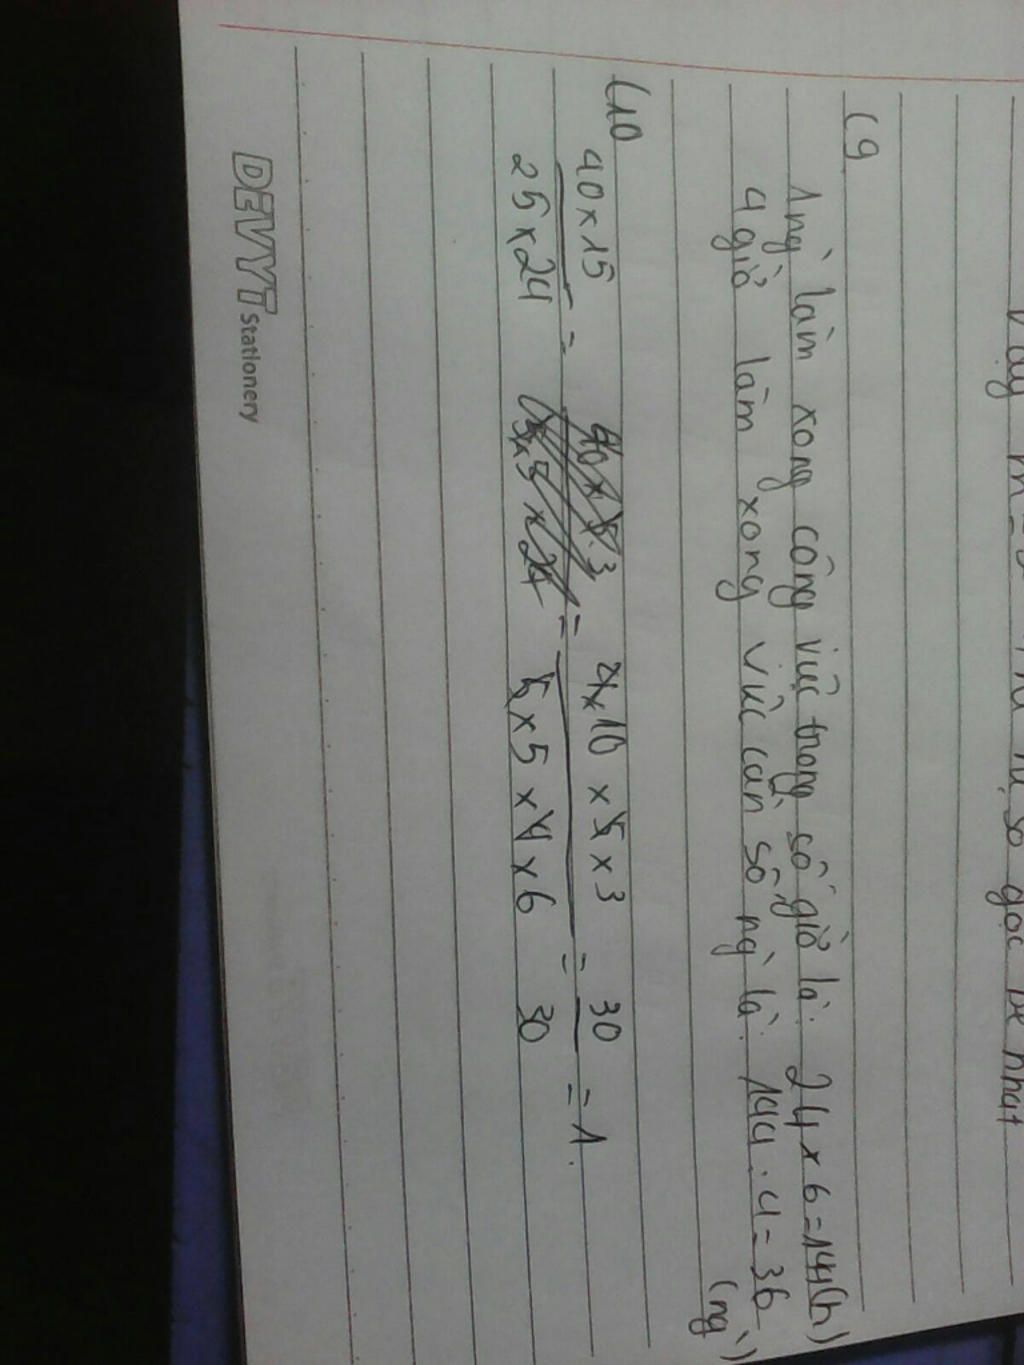 Vậy
gọc bé nhất
(9
1 ng` làm xong công việc trong số giờ là: 24 x 6 = 144(h)
4 giờ làm xong việc cần số ng` là: 144 : 4 = 36
(ng`)
(10
40 x 15 / 25 x 24 = = 4 x 10 x 5 x 3 / 5 x 5 x 4 x 6 = 30 / 30 = 1.
DEVYT Stationery